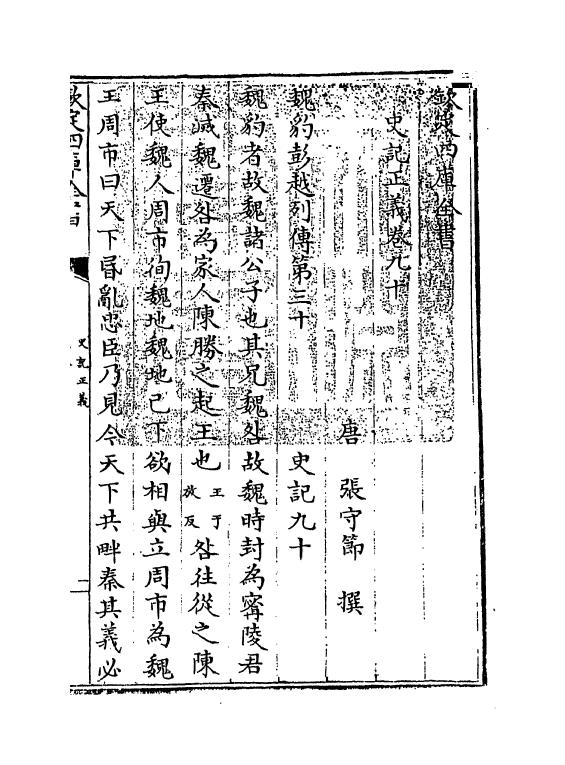 欽定四庫全書
史記正義卷九十
唐 張守節 撰
魏豹彭越列傳第三十 史記九十
魏豹者故魏諸公子也其兄魏咎故魏時封為寗陵君
秦滅魏遷咎為家人陳勝之起王也王于放反咎往從之陳
王使魏人周市徇魏地魏地已下欲相與立周市為魏
王周市曰天下昏亂忠臣乃見今天下共畔秦其義必
欽定四庫全書
史記正義